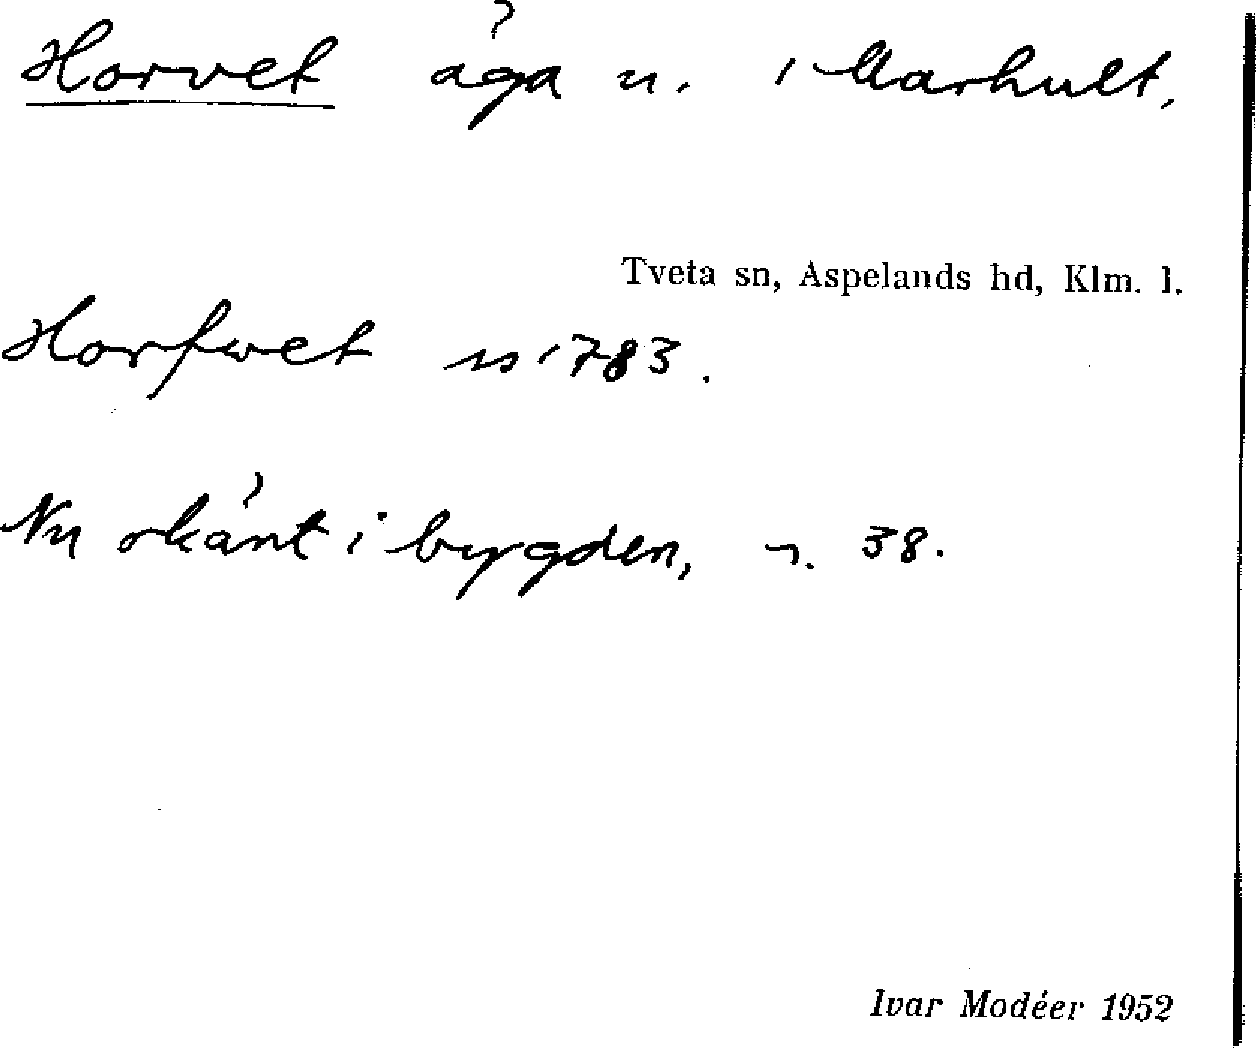 Horvet äga n. i Marhult.
Tveta sn, Aspelands hd, Klm. l.
Horfwet 1783.
Nu okänt i bygden, s. 38.
Ivar Modéer 1952